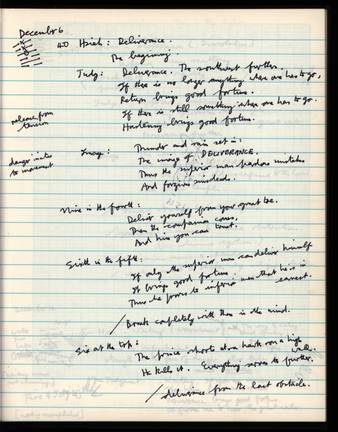 December 6
40 Hsieh: Deliverance.
The beginning.
Judg: Deliverance. The southwest furthers.
If there is no longer anything where one has to go,
Return brings good fortune.
If there is still something where one has to go,
Hastening brings good fortune.
release from
tension
danger incites
to movement
Image: Thunder and rain set in:
The image of DELIVERANCE.
Thus the superior man pardons mistakes
And forgives misdeeds.
Nine in the fourth:
Deliver yourself from your great toe.
Then the companion comes,
And him you can trust.
Sixth in the fifth:
If only the superior man can deliver himself
It brings good fortune.
Thus he proves to inferior men that he is in
earnest.
/ Break completely with them in the mind.
Six at the top:
The prince shoots at a hawk on a high
wall.
He kills it. Everything serves to further.
/ deliverance from the last obstacle.